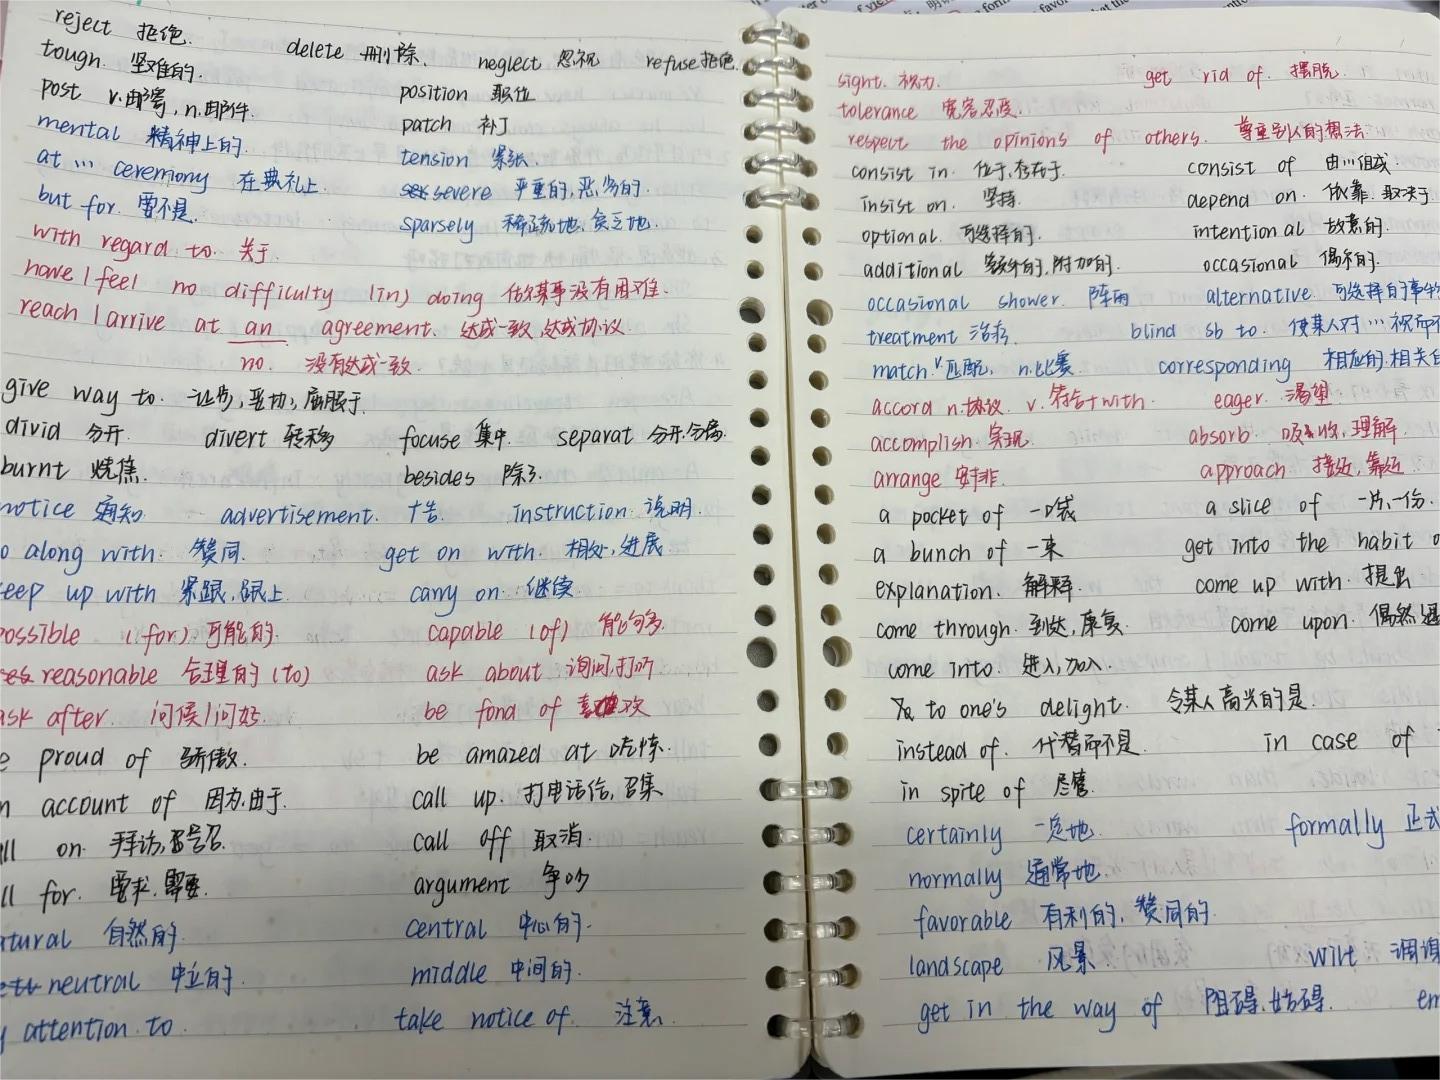 reject 拒绝.
delete 删除. neglect 忽视 refuse拒绝.
tough. 坚难的.
post v.邮寄, n.邮件. position 职位
mental 精神上的. patch 补丁
at ... ceremony 在典礼上 tension 紧张.
but for. 要不是. severe 严重的,恶劣的.
sparsely 稀疏地,贫乏地.
with regard to. 关于.
have / feel no difficulty (in) doing 做某事没有困难.
reach / arrive at an agreement. 达成一致,达成协议
no. 没有达成一致.
give way to. 让步,妥协,屈服于.
divid 分开. divert 转移 focuse 集中. separat 分开.分离.
burnt 烧焦. besides 除了.
notice 通知 advertisement. 广告. Instruction 说明.
o along with. 赞同. get on with. 相处,进展.
eep up with 紧跟,跟上 carry on. 继续.
ossible (for) 可能的. capable (of) 能够.
reasonable 合理的 (to) ask about 询问,打听
ask after. 问候/问好. be fond of 喜欢
e proud of 骄傲. be amazed at 吃惊.
n account of 因为,由于. call up. 打电话给,召集
ll on. 拜访,号召. call off 取消.
ll for. 需求.需要. argument 争吵
atural 自然的 central 中心的.
neutral 中立的. middle 中间的.
y attention to. take notice of. 注意.
sight. 视力. get rid of. 摆脱.
tolerance 宽容忍受.
respect the opinions of others. 尊重别人的想法
consist in. 位于,存在于. consist of 由...组成
insist on. 坚持. depend on. 依靠.取决于
optional. 可选择的. intentional 故意的.
additional 额外的,附加的. occasional 偶尔的.
occasional shower. 阵雨 alternative 可选择的事物
treatment 治疗. blind sb to. 使某人对...视而不
match. v.匹配, n.比赛 corresponding 相应的.相关的
accord n.协议. v.符合+with. eager. 渴望
accomplish. 实现. absorb. 吸收,理解.
arrange 安排. approach 接近,靠近.
a pocket of 一口袋 a slice of 一片,一份.
a bunch of 一束 get into the habit o
explanation. 解释. come up with. 提出
come through. 到达,康复. come upon. 偶然遇
come into. 进入,加入.
to one's delight. 令某人高兴的是.
instead of. 代替而不是. in case of
in spite of 尽管.
certainly 一定地. formally 正式
normally 通常地.
favorable 有利的,赞同的.
landscape 风景. wilt 凋谢
get in the way of 阻碍.妨碍. em